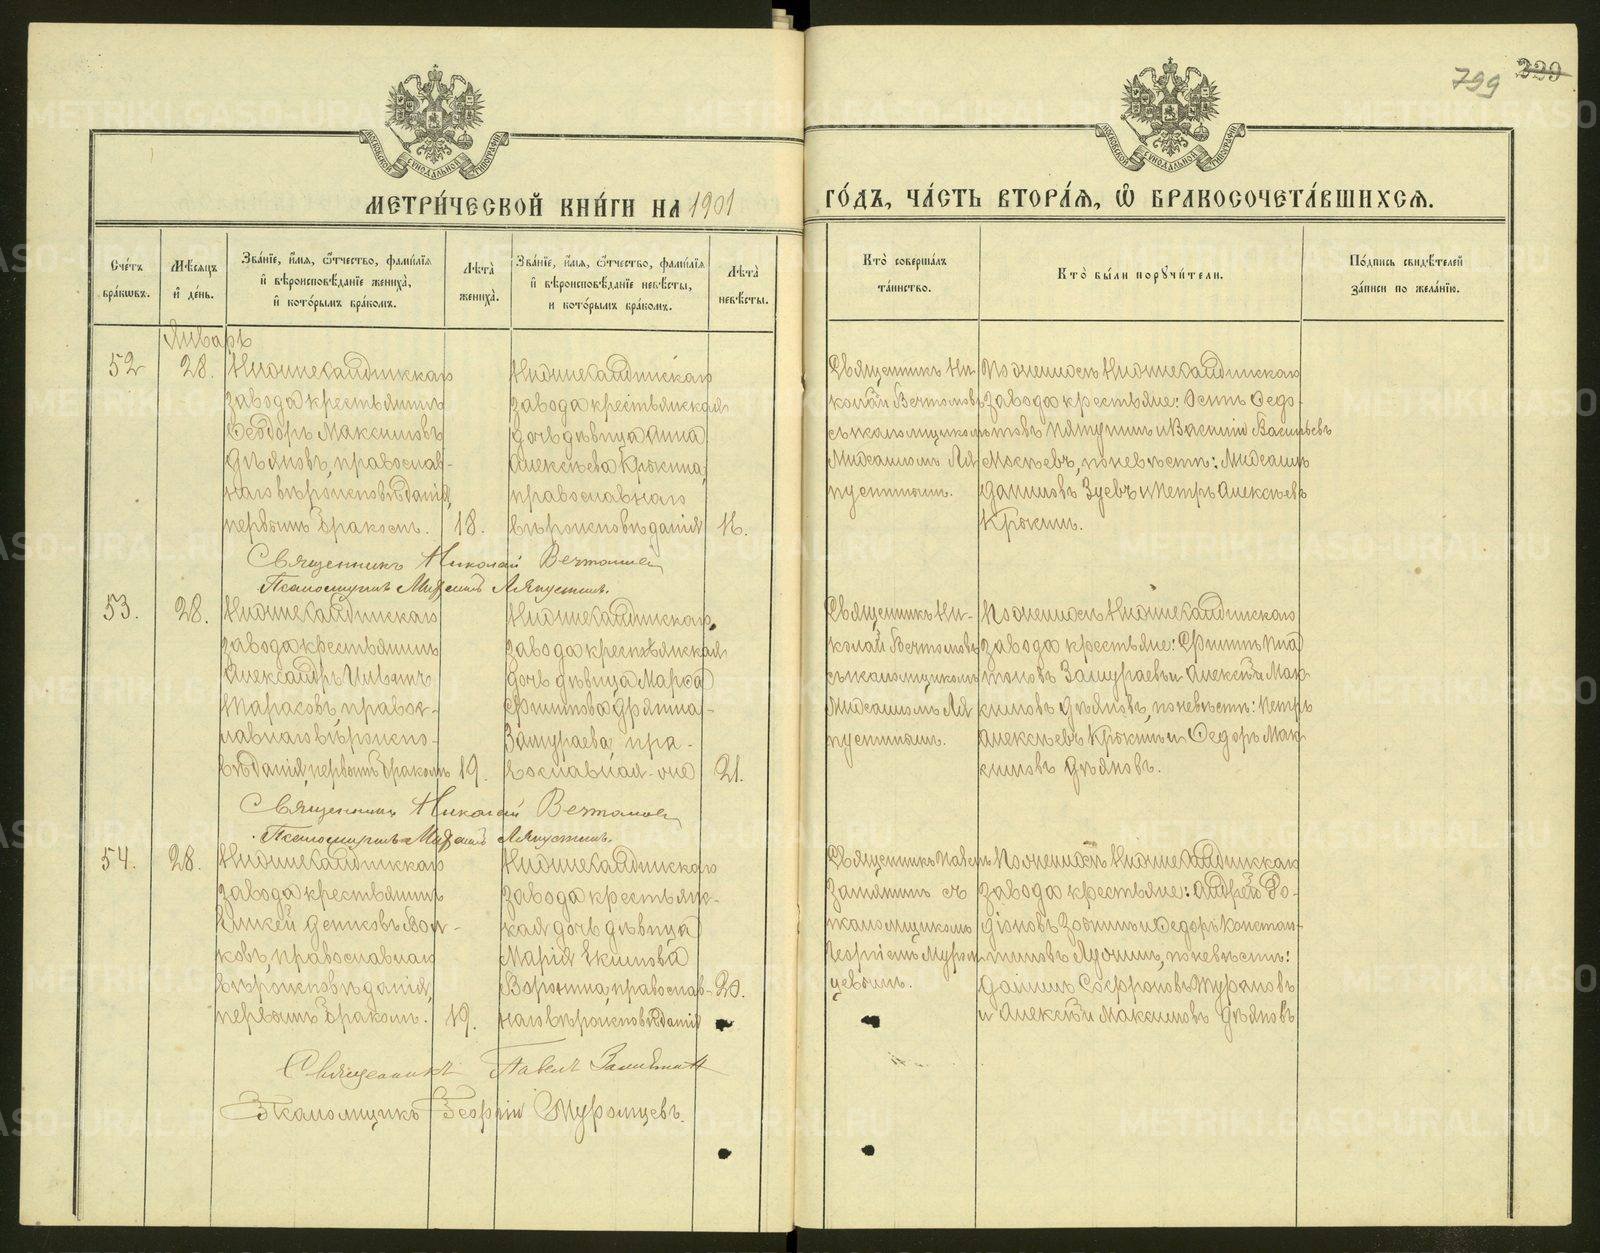 799 399
МОСКОВСКОЙ СѴНОДАЛЬНОЙ ТИПОГРАФІИ
МОСКОВСКОЙ СѴНОДАЛЬНОЙ ТИПОГРАФІИ
МЕТРИ́ЧЕСКОЙ КНИ́ГИ НА 1901
ГО́ДЪ, ЧА́СТЬ ВТОРА́Я, Ѿ БРАКОСОЧЕТА́ВШИХСЯ.
Сче́тъ бра́кѡвъ.
Мѣ́сяцъ и҆ де́нь.
Зва́нїе, и҆́мя, ѻ҆́тчество, фами́лїя и҆ вѣроисповѣ́данїе жениха̀, и҆ кото́рымъ бра́комъ.
Лѣ́та жениха̀.
Зва́нїе, и҆́мя, ѻ҆́тчество, фами́лїя и҆ вѣроисповѣ́данїе невѣ́сты, и кото́рымъ бра́комъ.
Лѣ́та невѣ́сты.
Кто̀ соверша́лъ та́инство.
Кто̀ бы́ли порꙋчи́тели.
По́дпись свидѣ́телей за́писи по жела́нїю.
Январь
52
28.
Нижнесалдинскаго
завода крестьянинъ
Ѳеодоръ Максимовъ
Дѣяновъ, православ-
наго вѣроисповѣданія,
первымъ бракомъ.
18.
Нижнесалдинскаго
завода крестьянская
дочь дѣвица Анна
Алексѣева Крюкина,
православнаго
вѣроисповѣданія
18.
Священникъ Ни-
колай Вечтомовъ
съ псаломщикомъ
Михаиломъ Ля-
пустинымъ.
По женихѣ Нижнесалдинскаго
завода крестьяне: Осипъ Ѳедо-
товъ Пятунинъ и Василій Васильевъ
Мокѣевъ, по невѣстѣ: Михаилъ
Даниловъ Зуевъ и Петръ Алексѣевъ
Крюкинъ.
Священникъ Николай Вечтомовъ
Псаломщикъ Михаилъ Ляпустинъ.
53.
28.
Нижнесалдинскаго
завода крестьянинъ
Александръ Ильичъ
Тарасовъ, право-
славнаго вѣроиспо-
вѣданія, первымъ бракомъ
19.
Нижнесалдинскаго
завода крестьянская
дочь дѣвица Марѳа
Филиппова Дрягина-
Замураева, пра-
вославная. она
21.
Священникъ Ни-
колай Вечтомовъ
съ псаломщикомъ
Михаиломъ Ля-
пустинымъ.
По женихѣ Нижнесалдинскаго
завода крестьяне: Филиппъ Пла
тоновъ Замураевъ и Алексѣй Мак-
симовъ Дѣяновъ, по невѣстѣ: Петръ
Алексѣевъ Крюкинъ и Ѳедоръ Мак
симовъ Дѣяновъ.
Священникъ Николай Вечтомовъ
Псаломщикъ Михаилъ Ляпустинъ.
54.
28.
Нижнесалдинскаго
завода крестьянинъ
Аликей Денисовъ Вол-
ковъ, православнаго
вѣроисповѣданія,
первымъ бракомъ.
19.
Нижнесалдинскаго
завода крестьянс-
кая дочь дѣвица
Марія Екимова
Воронина, православ-
наго вѣроисповѣданія
20.
Священникъ Павелъ
Замятинъ съ
псаломщикомъ
Георгіемъ Муром
цевымъ.
По женихѣ Нижнесалдинскаго
завода крестьяне: Андрей Ро-
діоновъ Зобнинъ и Ѳедоръ Констан-
тиновъ Лучинъ, по невѣстѣ:
Даніилъ Софроновъ Турановъ
и Алексѣй Максимовъ Дѣяновъ
Священникъ Павелъ Замятинъ
Псаломщикъ Георгій Муромцевъ.
METRIKI.GASO-URAL.RU